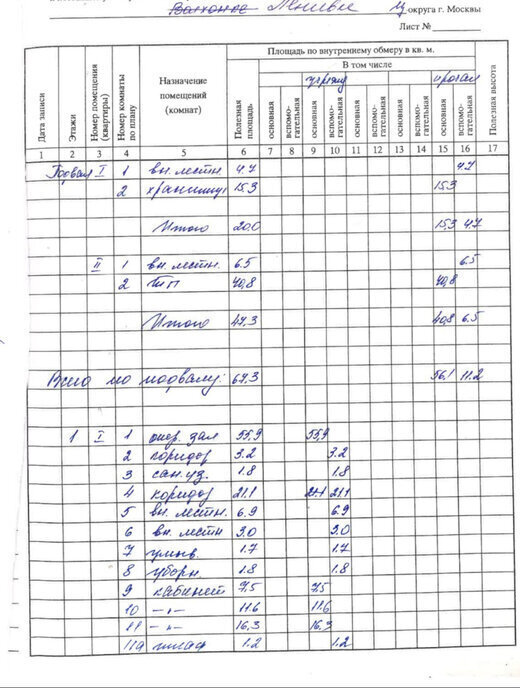 Ленивка
Ц округа г. Москвы
Лист №
Площадь по внутреннему обмеру в кв. м.
В том числе
учрежд прочая
Дата записи Этажи Номер помещения (квартиры) Номер комнаты по плану Назначение помещений (комнат) Полезная площадь основная вспомогательная основная вспомогательная основная вспомогательная основная вспомогательная основная вспомогательная Полезная высота
1 2 3 4 5 6 7 8 9 10 11 12 13 14 15 16 17
Подвал I 1 вн. лестн 4.7 4.7
2 хранилищ 15.3 15.3
Итого 20.0 15.3 4.7
II 1 вн. лестн. 6.5 6.5
2 ТП 40,8 40,8
Итого 47.3 40,8 6.5
Всего по подвалу: 67.3 56.1 11.2
1 I 1 опер. зал 55,9 55,9
2 коридор 3.2 3.2
3 сан. уз. 1.8 1.8
4 коридор 21.1 21.1 21.1
5 вн. лестн. 6.9 6.9
6 вн. лестн 3.0 3.0
7 умыв. 1.7 1.7
8 уборн. 1.8 1.8
9 кабинет 7,5 7,5
10 -"- 11.6 11.6
11 -"- 16,3 16.3
11а шкаф 1.2 1.2